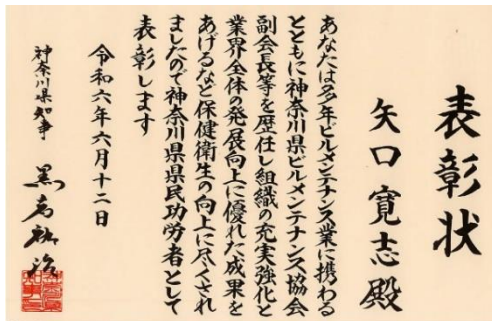 表彰状
矢口寛志殿
あなたは多年ビルメンテナンス業に携わる
とともに神奈川県ビルメンテナンス協会
副会長等を歴任し組織の充実強化と
業界全体の発展向上に優れた成果を
あげるなど保健衛生の向上に尽くされ
ましたので神奈川県県民功労者として
表彰します
令和六年六月十二日
神奈川県知事 黒岩祐治